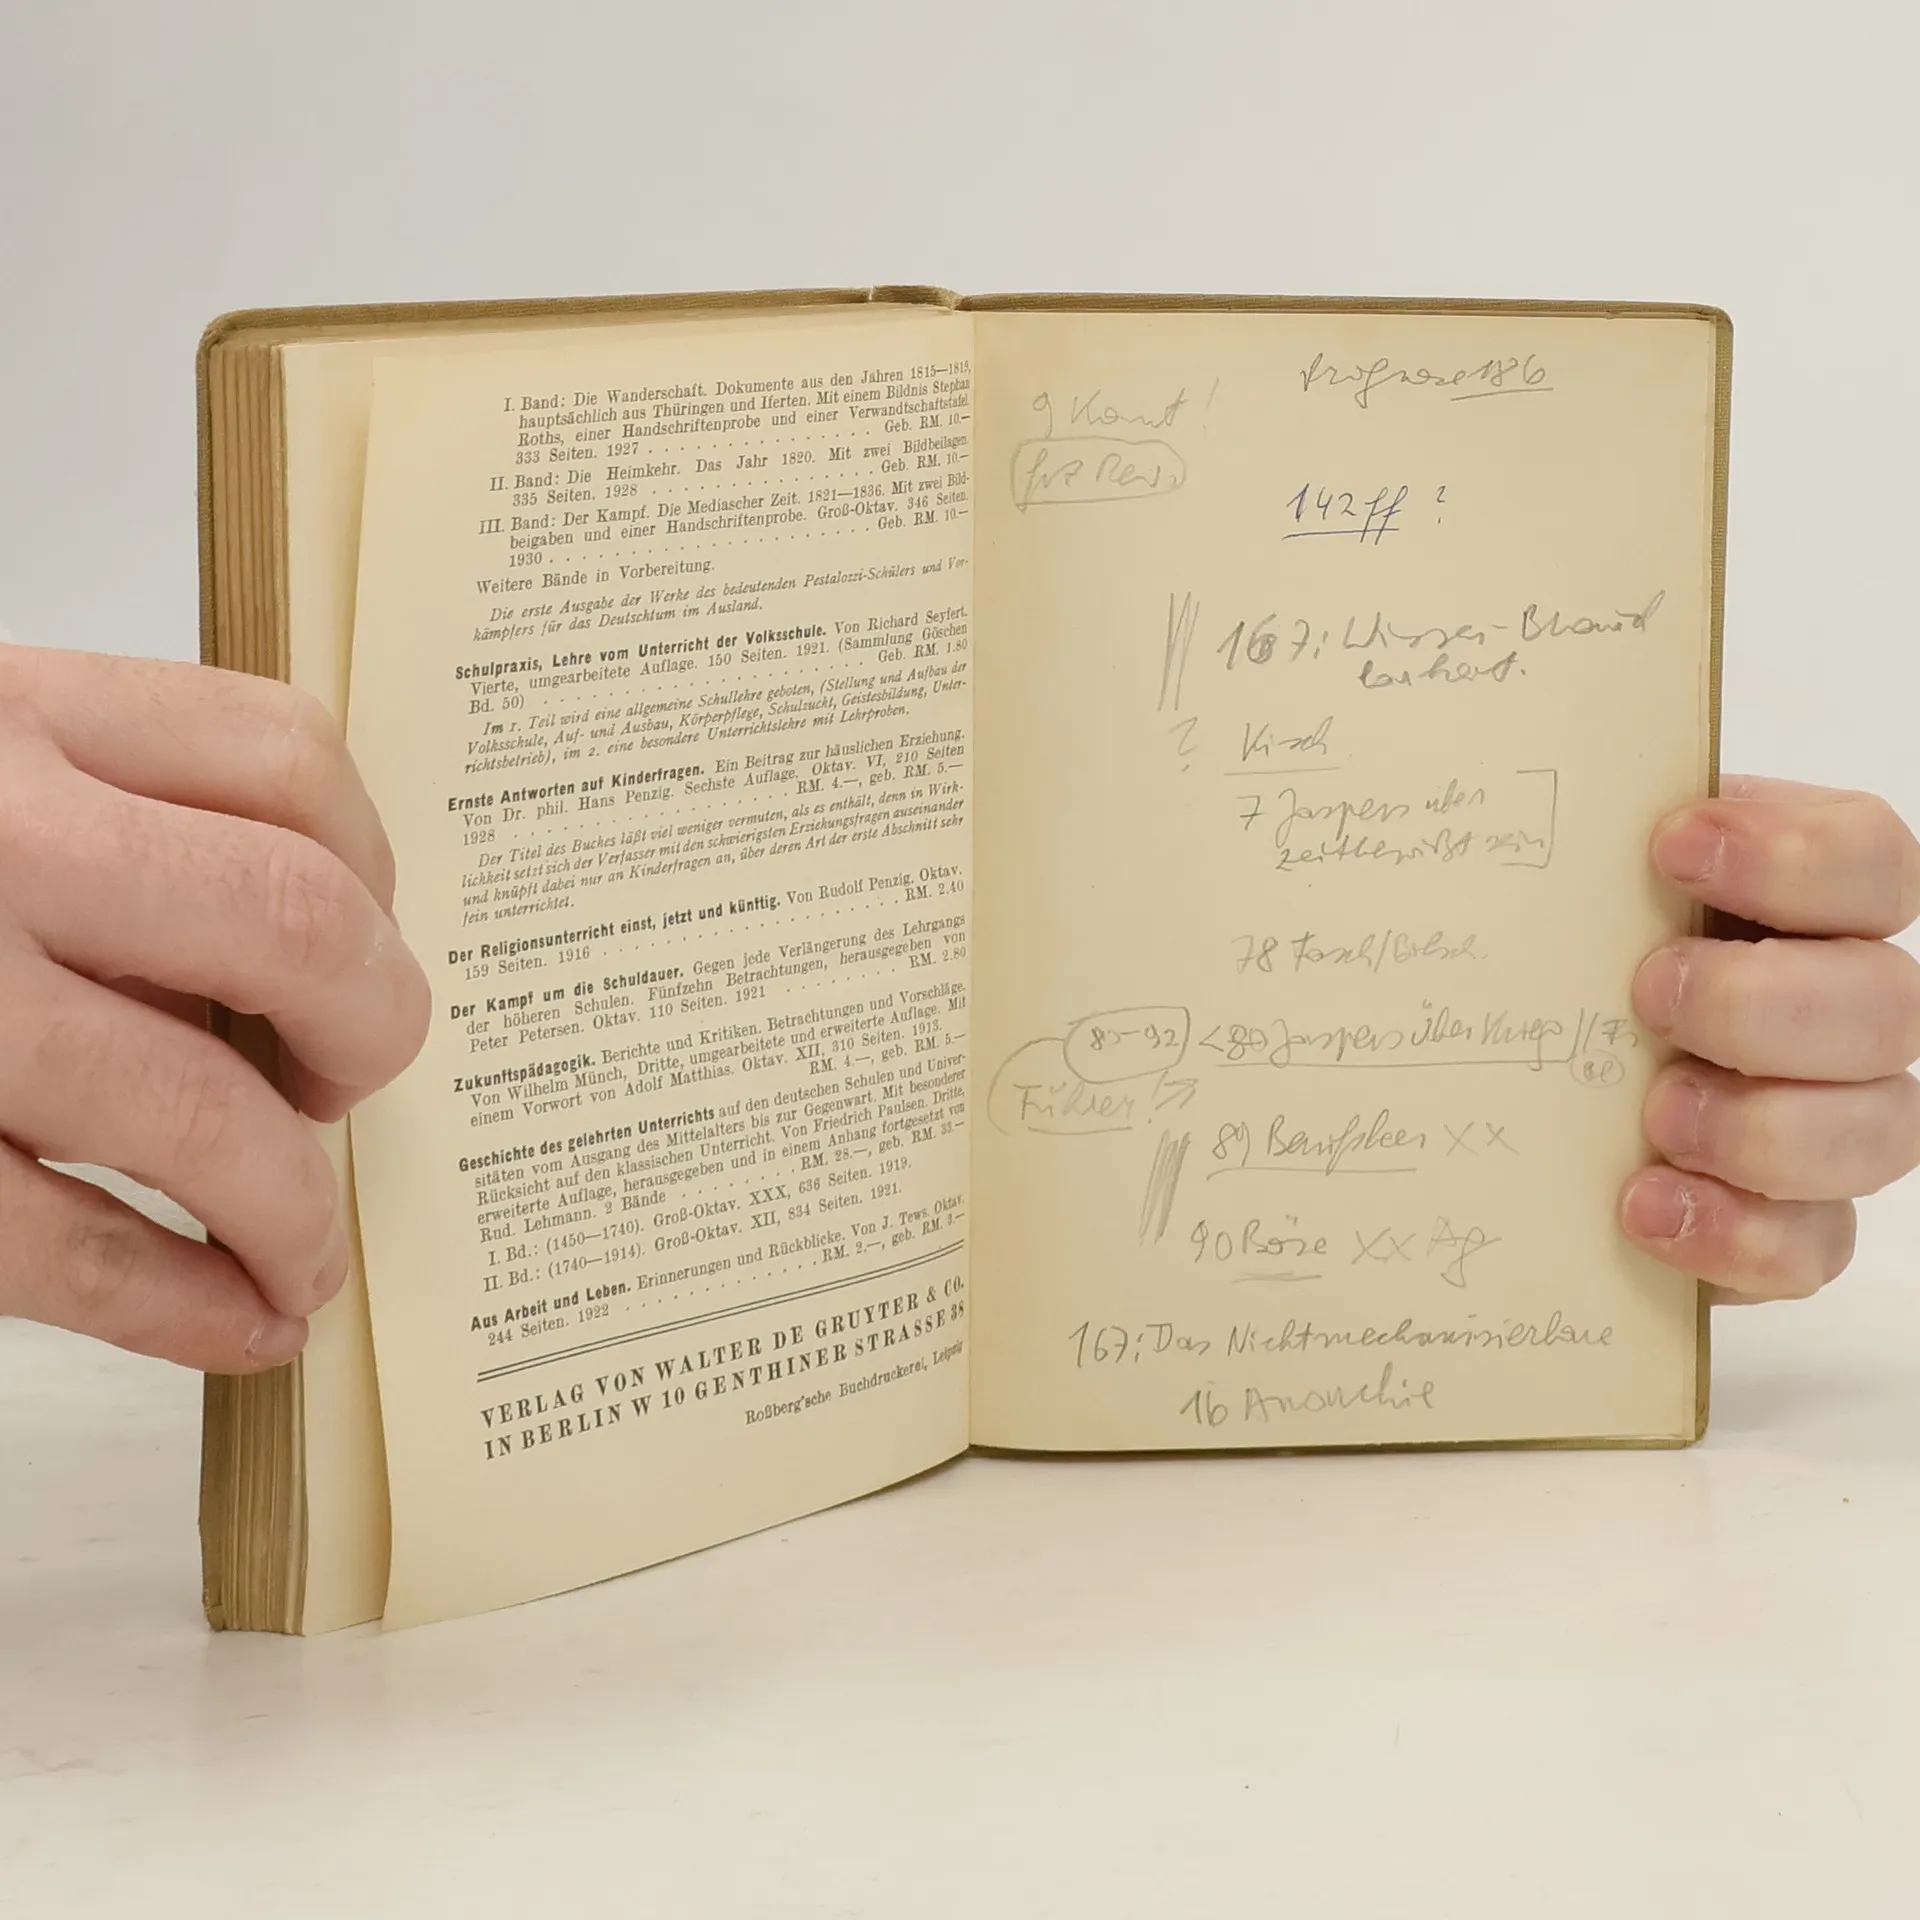 I. Band: Die Wanderschaft. Dokumente aus den Jahren 1815—1819,
hauptsächlich aus Thüringen und Iferten. Mit einem Bildnis Stephan
Roths, einer Handschriftenprobe und einer Verwandtschaftstafel.
333 Seiten. 1927 . . . . . . . . . . . . . . . Geb. RM. 10.—
II. Band: Die Heimkehr. Das Jahr 1820. Mit zwei Bildbeilagen.
335 Seiten. 1928 . . . . . . . . . . . . . . . Geb. RM. 10.—
III. Band: Der Kampf. Die Mediascher Zeit. 1821—1836. Mit zwei Bild-
beigaben und einer Handschriftenprobe. Groß-Oktav. 346 Seiten.
1930 . . . . . . . . . . . . . . . . . . . . . Geb. RM. 10.—
Weitere Bände in Vorbereitung.
Die erste Ausgabe der Werke des bedeutenden Pestalozzi-Schülers und Vor-
kämpfers für das Deutschtum im Ausland.
Schulpraxis, Lehre vom Unterricht der Volksschule. Von Richard Seyfert.
Vierte, umgearbeitete Auflage. 150 Seiten. 1921. (Sammlung Göschen
Bd. 50) . . . . . . . . . . . . . . . . . . . . Geb. RM. 1.80
Im 1. Teil wird eine allgemeine Schullehre geboten, (Stellung und Aufbau der
Volksschule, Auf- und Ausbau, Körperpflege, Schulzucht, Geistesbildung, Unter-
richtsbetrieb), im 2. eine besondere Unterrichtslehre mit Lehrproben.
Ernste Antworten auf Kinderfragen. Ein Beitrag zur häuslichen Erziehung.
Von Dr. phil. Hans Penzig. Sechste Auflage. Oktav. VI, 210 Seiten
1928 . . . . . . . . . . . . . . . RM. 4.—, geb. RM. 5.—
Der Titel des Buches läßt viel weniger vermuten, als es enthält, denn in Wirk-
lichkeit setzt sich der Verfasser mit den schwierigsten Erziehungsfragen auseinander
und knüpft dabei nur an Kinderfragen an, über deren Art der erste Abschnitt sehr
fein unterrichtet.
Der Religionsunterricht einst, jetzt und künftig. Von Rudolf Penzig. Oktav.
159 Seiten. 1916 . . . . . . . . . . . . . . . . . RM. 2.40
Der Kampf um die Schuldauer. Gegen jede Verlängerung des Lehrgangs
der höheren Schulen. Fünfzehn Betrachtungen, herausgegeben von
Peter Petersen. Oktav. 110 Seiten. 1921 . . . . . . . RM. 2.80
Zukunftspädagogik. Berichte und Kritiken. Betrachtungen und Vorschläge.
Von Wilhelm Münch, Dritte, umgearbeitete und erweiterte Auflage. Mit
einem Vorwort von Adolf Matthias. Oktav. XII, 310 Seiten. 1913.
RM. 4.—, geb. RM. 5.—
Geschichte des gelehrten Unterrichts auf den deutschen Schulen und Univer-
sitäten vom Ausgang des Mittelalters bis zur Gegenwart. Mit besonderer
Rücksicht auf den klassischen Unterricht. Von Friedrich Paulsen. Dritte,
erweiterte Auflage, herausgegeben und in einem Anhang fortgesetzt von
Rud. Lehmann. 2 Bände . . . . . . . . RM. 28.—, geb. RM. 33.—
I. Bd.: (1450—1740). Groß-Oktav. XXX, 636 Seiten. 1919.
II. Bd.: (1740—1914). Groß-Oktav. XII, 834 Seiten. 1921.
Aus Arbeit und Leben. Erinnerungen und Rückblicke. Von J. Tews. Oktav.
244 Seiten. 1922 . . . . . . . . . . . RM. 2.—, geb. RM. 3.—
VERLAG VON WALTER DE GRUYTER & CO.
IN BERLIN W 10 GENTHINER STRASSE 38
Roßberg'sche Buchdruckerei, Leipzig
Prognose 186
9 Kant!
142 ff ?
167:
? Kisch
7 Jaspers über
zeitbewußt sein
78
80-92 < 80 Jaspers über Kriege //
Führer!
89 xx
90 Böse xx Ag
167: Das Nichtmechanisierbare
16 Anarchie